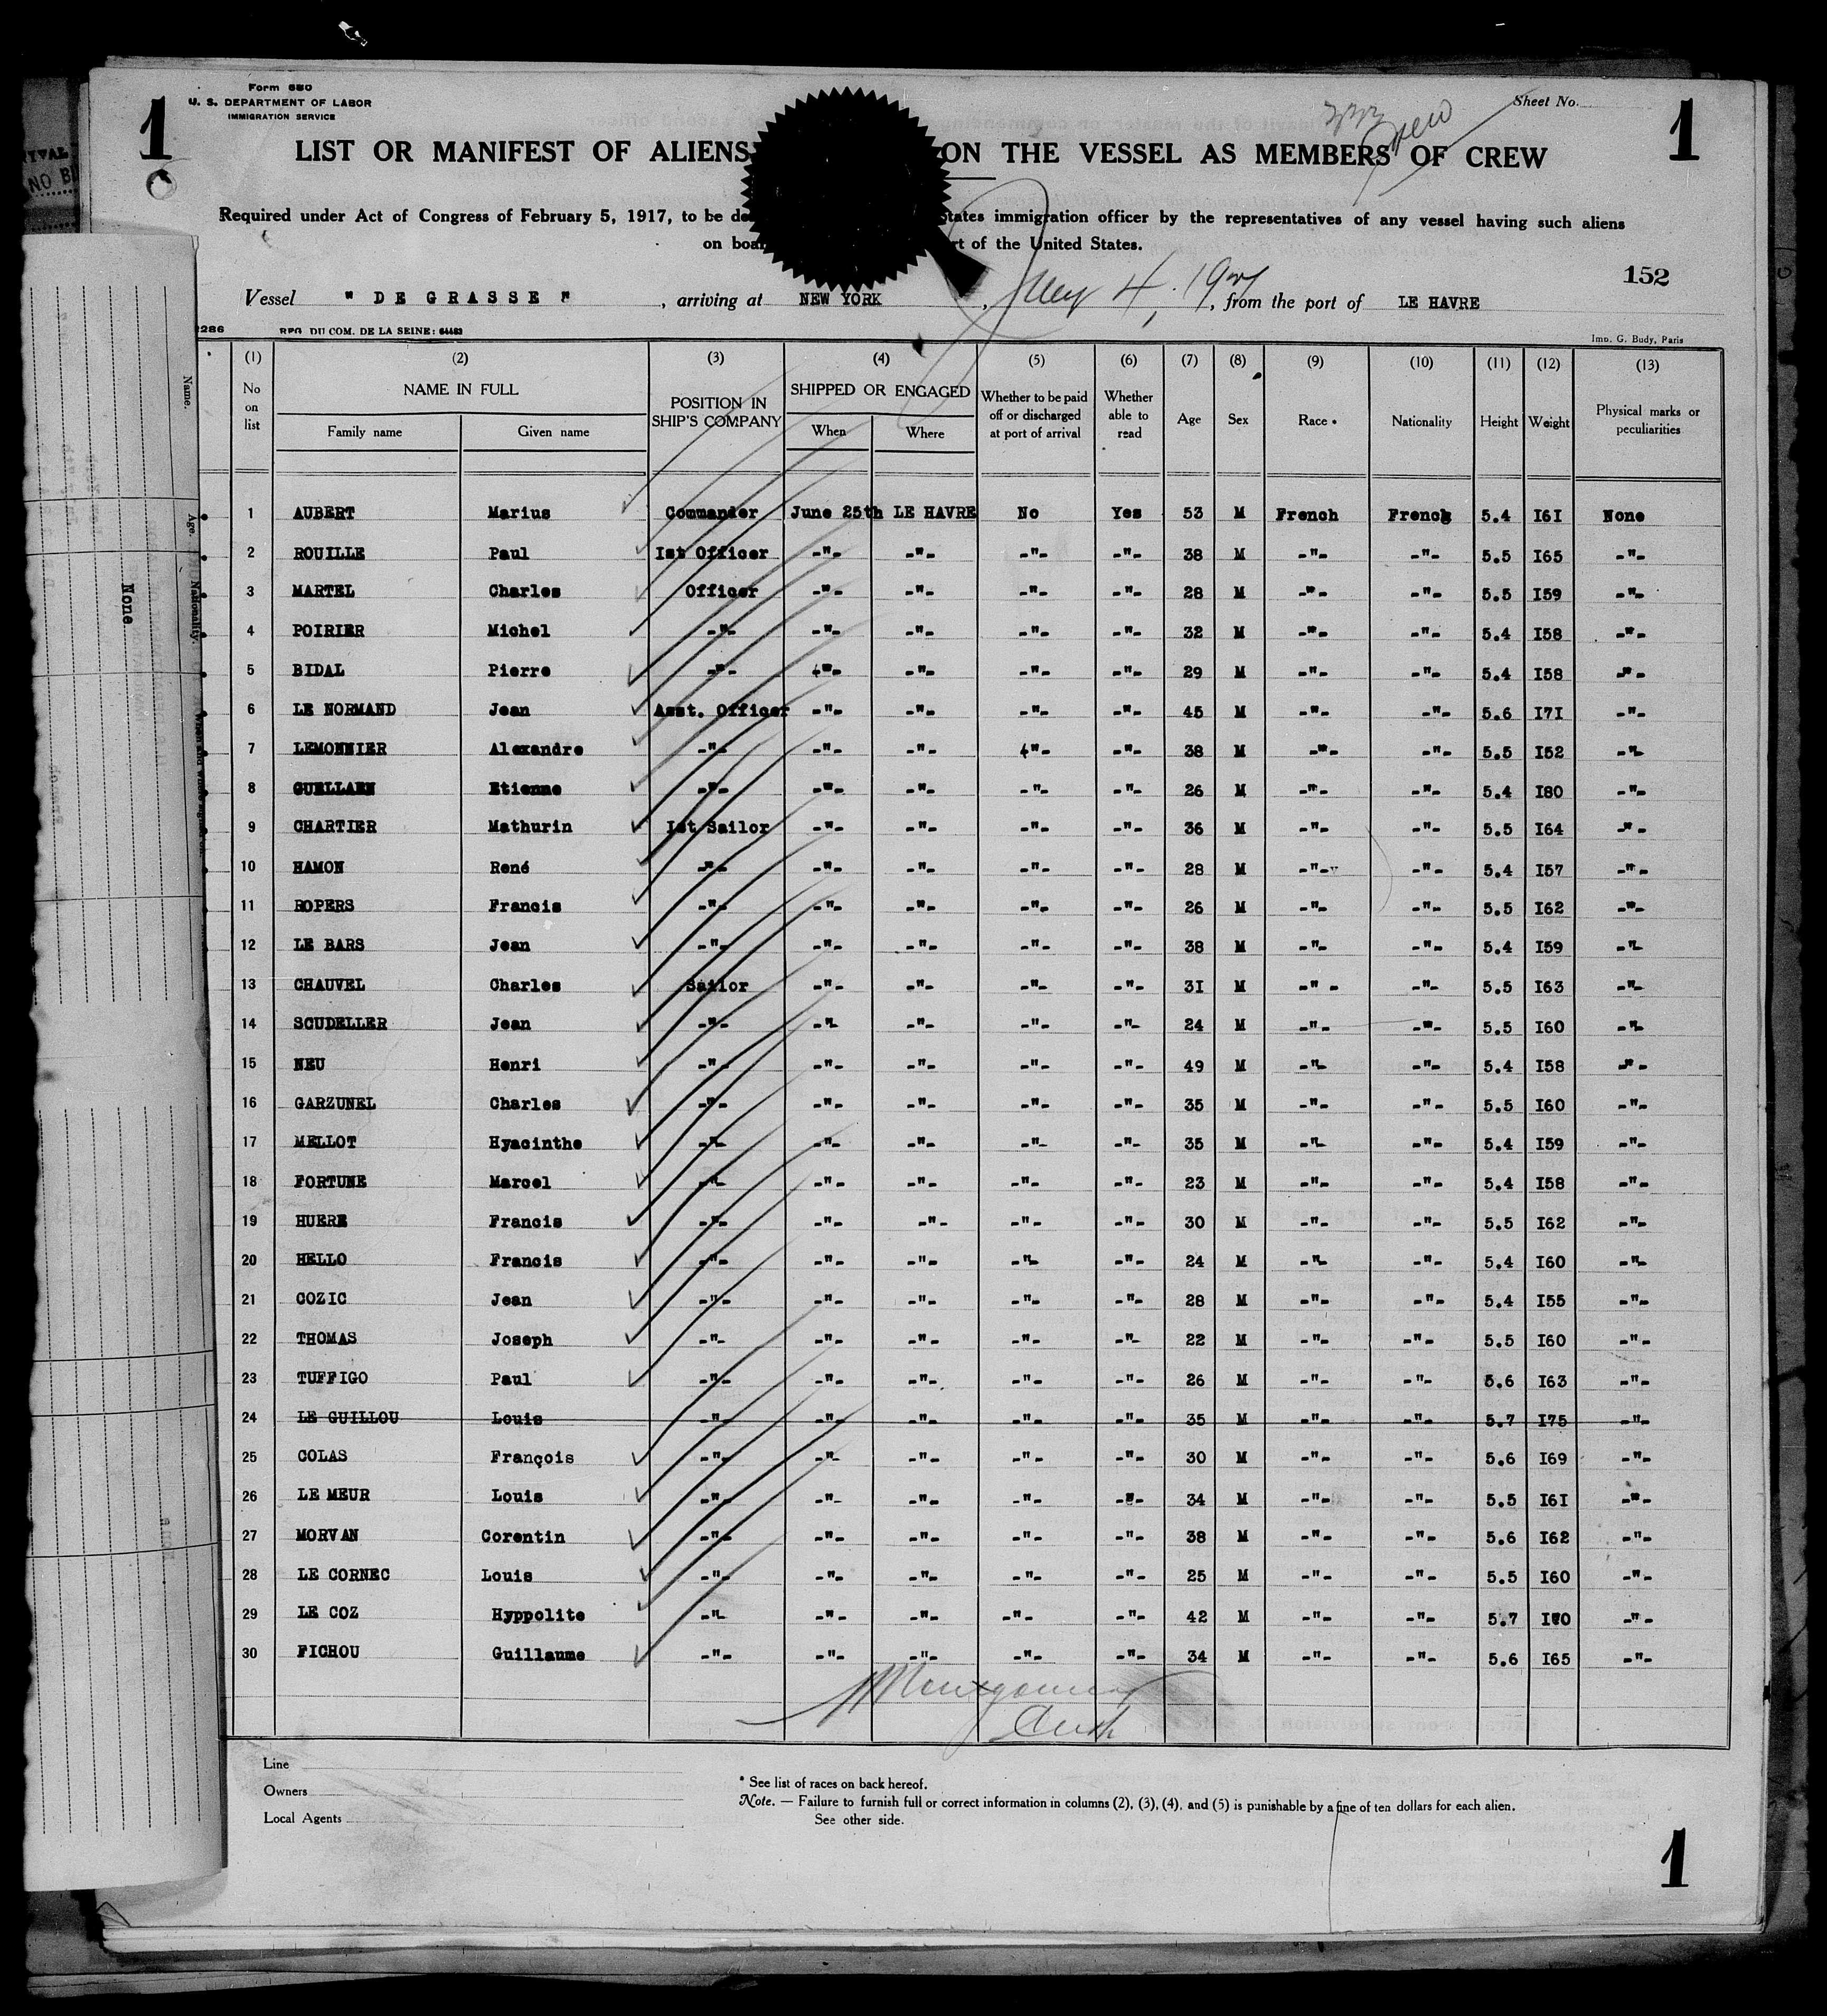 Form 680
U. S. DEPARTMENT OF LABOR
IMMIGRATION SERVICE
1
Sheet No.
1
LIST OR MANIFEST OF ALIENS ON THE VESSEL AS MEMBERS OF CREW
Required under Act of Congress of February 5, 1917, to be States immigration officer by the representatives of any vessel having such aliens
on of the United States.
152
Vessel " DE GRASSE " , arriving at NEW YORK , 4, , from the port of LE HAVRE
REG. DU COM. DE LA SEINE: 64483
Imp. G. Budy, Paris
(1) (2) (3) (4) (5) (6) (7) (8) (9) (10) (11) (12) (13)
No on list NAME IN FULL Family name Given name POSITION IN SHIP'S COMPANY SHIPPED OR ENGAGED When Where Whether to be paid off or discharged at port of arrival Whether able to read Age Sex Race * Nationality Height Weight Physical marks or peculiarities
1 AUBERT Marius Commander June 25th LE HAVRE No Yes 53 M French French 5.4 I6I None
2 ROUILLE Paul Ist Officer -"- -"- -"- -"- 38 M -"- -"- 5.5 I65 -"-
3 MARTEL Charles Officer -"- -"- -"- -"- 28 M -"- -"- 5.5 I59 -"-
4 POIRIER Michel -"- -"- -"- -"- -"- 32 M -"- -"- 5.4 I58 -"-
5 BIDAL Pierre -"- -"- -"- -"- -"- 29 M -"- -"- 5.4 I58 -"-
6 LE NORMAND Jean Asst. Officer -"- -"- -"- -"- 45 M -"- -"- 5.6 I7I -"-
7 LEMONNIER Alexandre -"- -"- -"- -"- -"- 38 M -"- -"- 5.5 I52 -"-
8 GUELLAEN Etienne -"- -"- -"- -"- -"- 26 M -"- -"- 5.4 I80 -"-
9 CHARTIER Mathurin Ist Sailor -"- -"- -"- -"- 36 M -"- -"- 5.5 I64 -"-
10 HAMON René -"- -"- -"- -"- -"- 28 M -"- -"- 5.4 I57 -"-
11 ROPERS Francis -"- -"- -"- -"- -"- 26 M -"- -"- 5.5 I62 -"-
12 LE BARS Jean -"- -"- -"- -"- -"- 38 M -"- -"- 5.4 I59 -"-
13 CHAUVEL Charles Sailor -"- -"- -"- -"- 3I M -"- -"- 5.5 I63 -"-
14 SCUDELLER Jean -"- -"- -"- -"- -"- 24 M -"- -"- 5.5 I60 -"-
15 NEU Henri -"- -"- -"- -"- -"- 49 M -"- -"- 5.4 I58 -"-
16 GARZUNEL Charles -"- -"- -"- -"- -"- 35 M -"- -"- 5.5 I60 -"-
17 MELLOT Hyacinthe -"- -"- -"- -"- -"- 35 M -"- -"- 5.4 I59 -"-
18 FORTUNE Marcel -"- -"- -"- -"- -"- 23 M -"- -"- 5.4 I58 -"-
19 HUERE Francis -"- -"- -"- -"- -"- 30 M -"- -"- 5.5 I62 -"-
20 HELLO Francis -"- -"- -"- -"- -"- 24 M -"- -"- 5.4 I60 -"-
21 COZIC Jean -"- -"- -"- -"- -"- 28 M -"- -"- 5.4 I55 -"-
22 THOMAS Joseph -"- -"- -"- -"- -"- 22 M -"- -"- 5.5 I60 -"-
23 TUFFIGO Paul -"- -"- -"- -"- -"- 26 M -"- -"- 5.6 I63 -"-
24 LE GUILLOU Louis -"- -"- -"- -"- -"- 35 M -"- -"- 5.7 I75 -"-
25 COLAS François -"- -"- -"- -"- -"- 30 M -"- -"- 5.6 I69 -"-
26 LE MEUR Louis -"- -"- -"- -"- -"- 34 M -"- -"- 5.5 I6I -"-
27 MORVAN Corentin -"- -"- -"- -"- -"- 38 M -"- -"- 5.6 I62 -"-
28 LE CORNEC Louis -"- -"- -"- -"- -"- 25 M -"- -"- 5.5 I60 -"-
29 LE COZ Hyppolite -"- -"- -"- -"- -"- 42 M -"- -"- 5.7 I70 -"-
30 FICHOU Guillaume -"- -"- -"- -"- -"- 34 M -"- -"- 5.6 I65 -"-
Line
Owners
Local Agents
* See list of races on back hereof.
Note. — Failure to furnish full or correct information in columns (2), (3), (4), and (5) is punishable by a fine of ten dollars for each alien.
See other side.
1
Name.
Age.
Nationality.
None